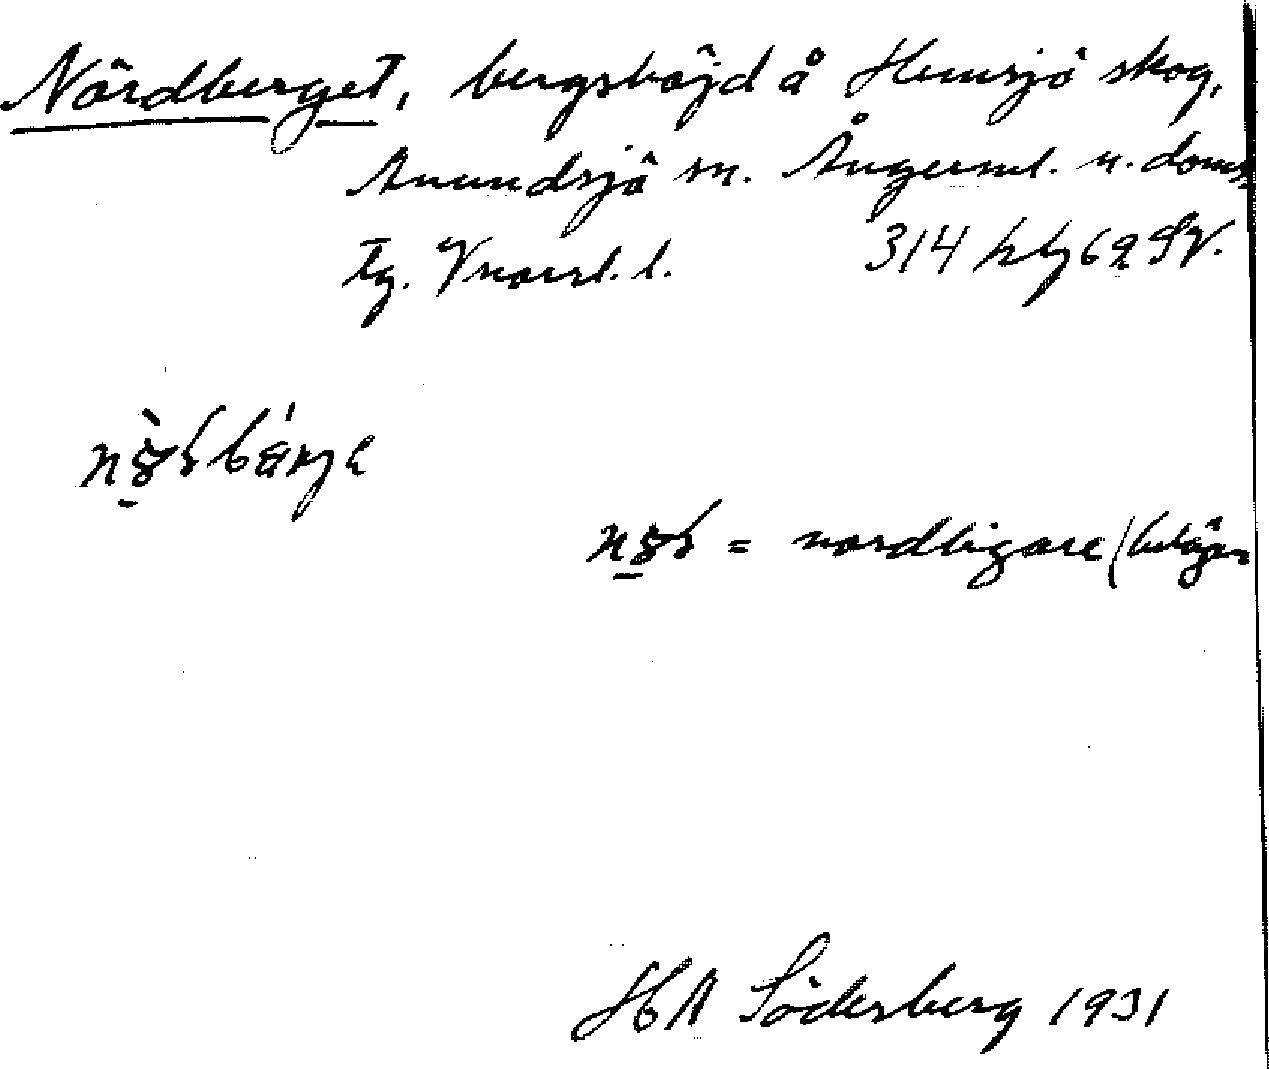 Nördberget, bergshöjd å Hemsjö skog,
Anundsjö sn. Ångerml. n. doms.
tg. Vnorrl. l. 314 62 SV.
= nordligare (belägen
HA Söderberg 1931